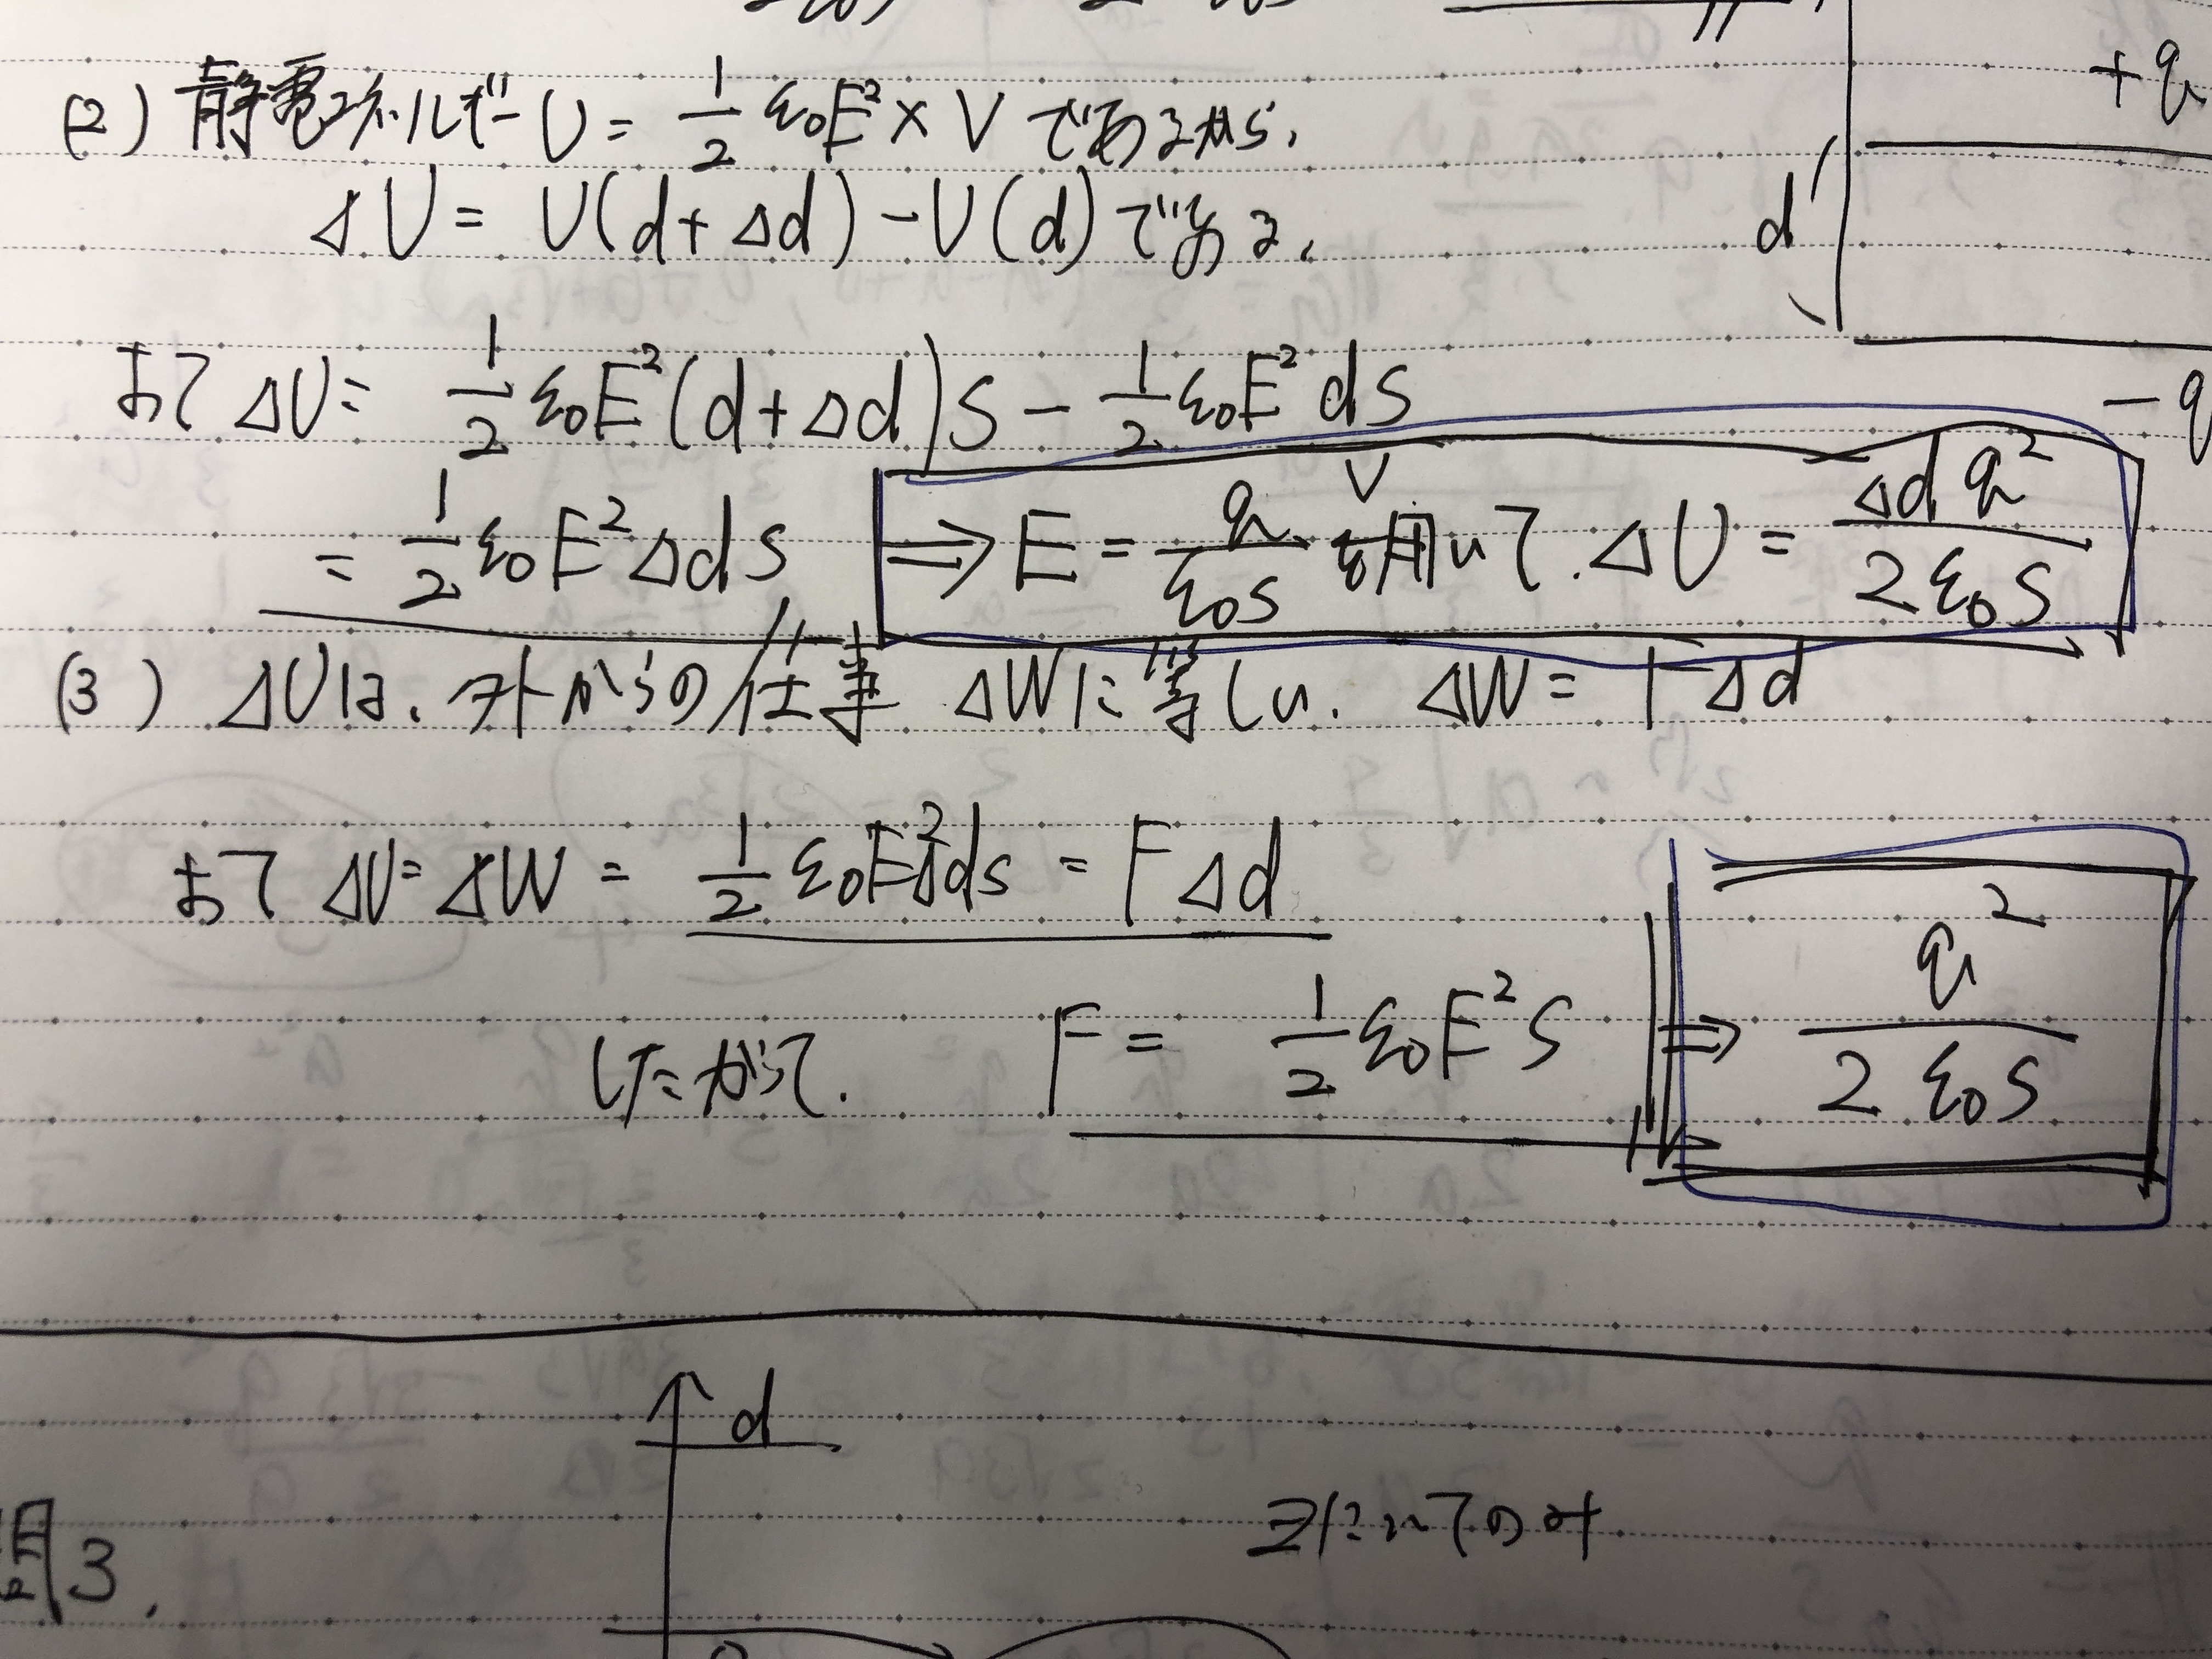 (2) 静電エネルギー U = 1/2 ε₀E² × V であるから、
ΔU = U(d+Δd) - U(d) である。
+q
d
よって ΔU = 1/2 ε₀E²(d+Δd)S - 1/2 ε₀E² dS
-q
= 1/2 ε₀E² Δd S ⇒ E = q/ε₀S を用いて. ΔU = Δd q²/2ε₀S
(3) ΔUは、外からの仕事 ΔWに等しい. ΔW = FΔd
よって ΔU = ΔW = 1/2 ε₀E²Δds = FΔd
したがって. F = 1/2 ε₀E²S ⇒ q²/2ε₀S
d
問3.
zについてのみ